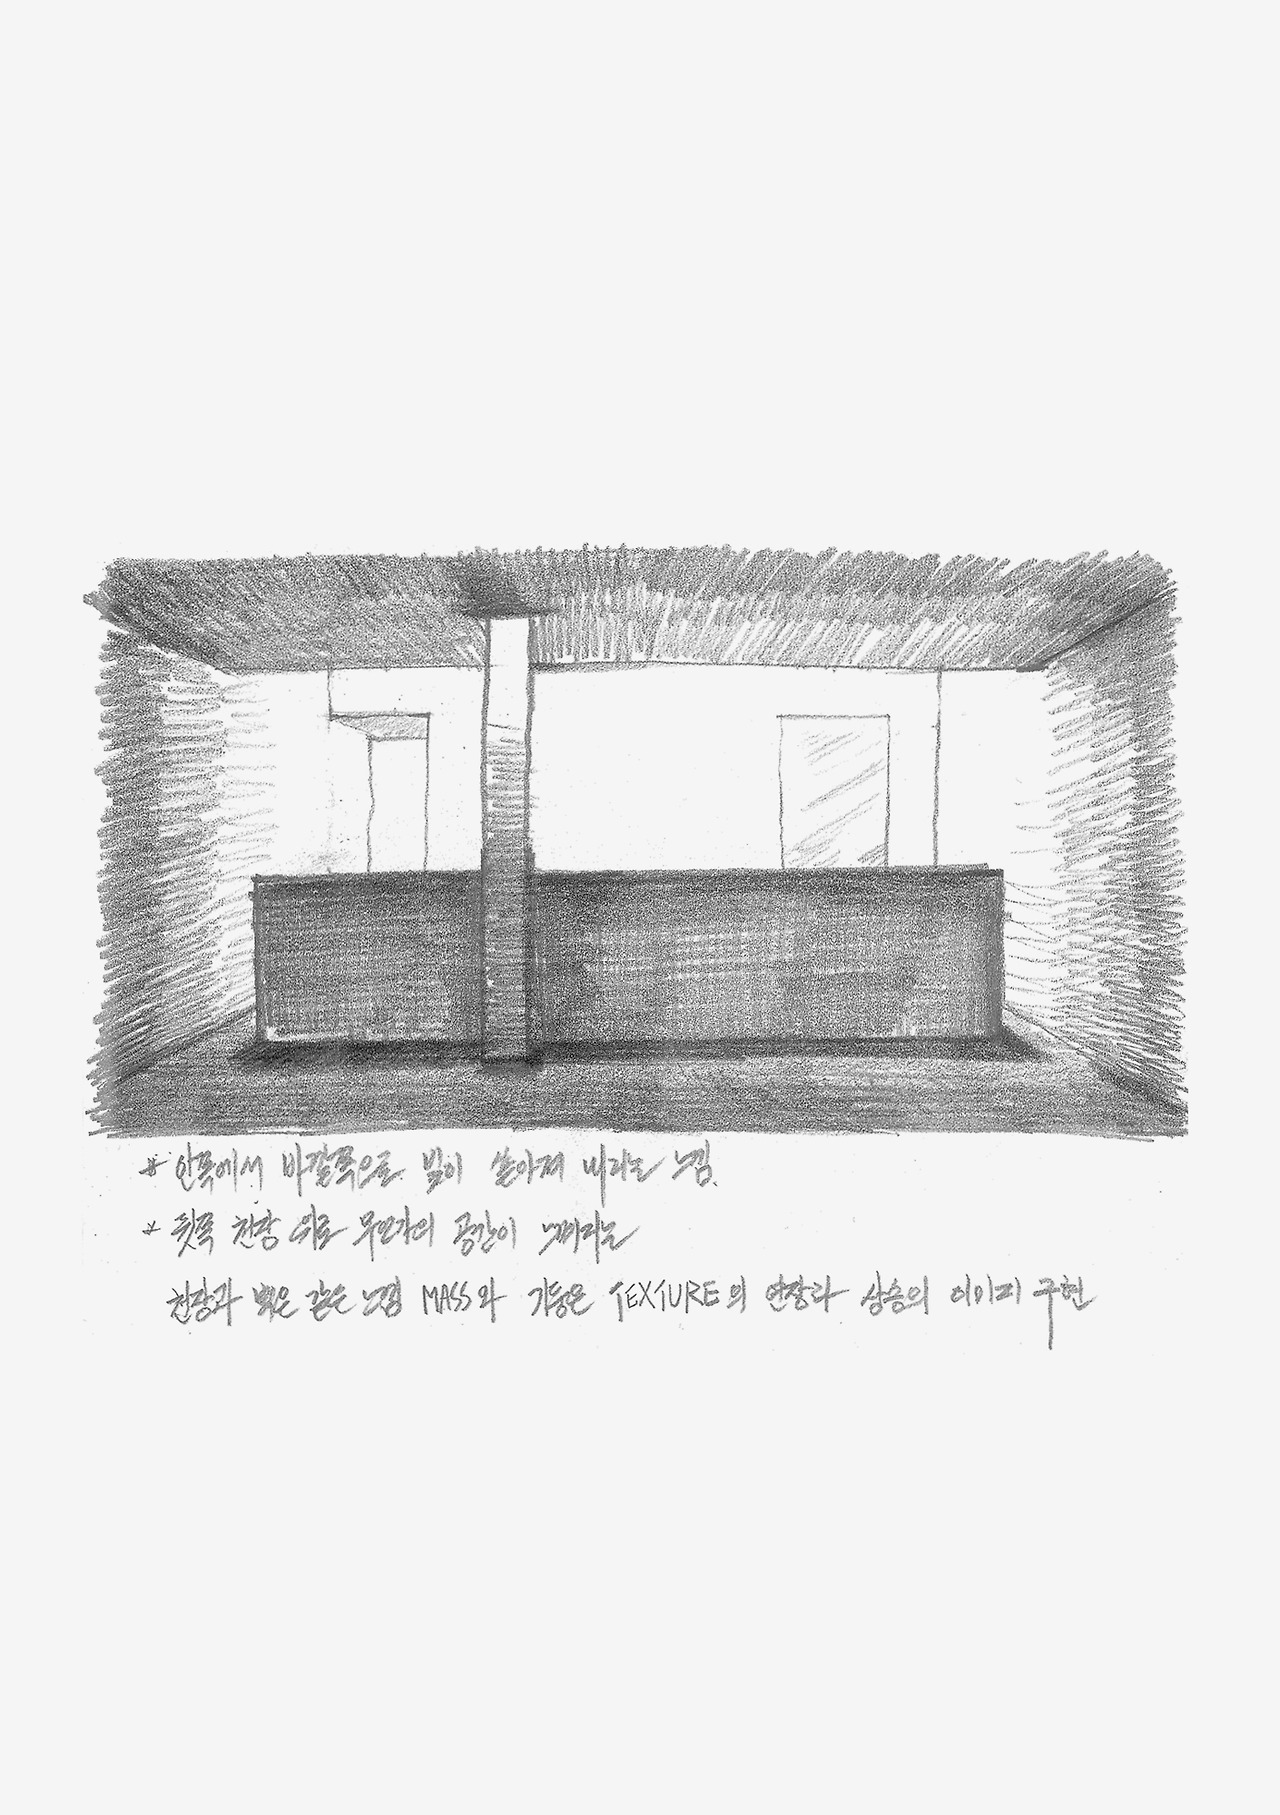 * 안쪽에서 바깥쪽으로 빛이 쏟아져 내리는 느낌.
* 뒷쪽 천장 위로 무언가의 공간이 느껴지는
천장과 벽은 같은 느낌 MASS와 기둥은 TEXTURE의 연장과 상승의 이미지 구현